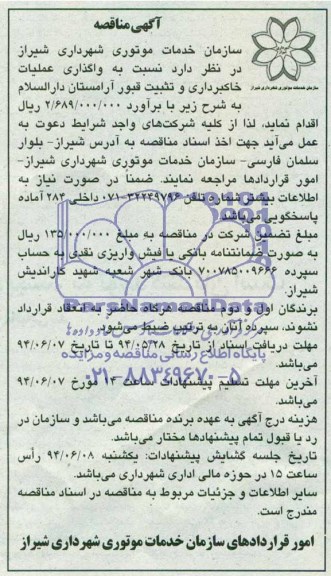 آگهی مناقصه
سازمان خدمات موتوری شهرداری شیراز
سازمان خدمات موتوری شهرداری شیراز
در نظر دارد نسبت به واگذاری عملیات
خاکبرداری و تثبیت قبور آرامستان دارالسلام
به شرح زیر با برآورد ۲/۶۸۹/۰۰۰/۰۰۰ ریال
اقدام نماید، لذا از کلیه شرکت‌های واجد شرایط دعوت به
عمل می‌آید جهت اخذ اسناد مناقصه به آدرس شیراز- بلوار
سلمان فارسی- سازمان خدمات موتوری شهرداری شیراز-
امور قراردادها مراجعه نمایند. ضمناً در صورت نیاز به
اطلاعات بیشتر شماره تلفن ۳۲۲۴۹۷۹۶-۰۷۱ داخلی ۲۸۴ آماده
پاسخگویی می‌باشد.
مبلغ تضمین شرکت در مناقصه به مبلغ ۱۳۵/۰۰۰/۰۰۰ ریال
به صورت ضمانتنامه بانکی یا فیش واریزی نقدی به حساب
سپرده ۷۰۰۷۸۵۰۰۹۶۶۶ بانک شهر شعبه شهید کاراندیش
شیراز.
برندگان اول و دوم مناقصه هرگاه حاضر به انعقاد قرارداد
نشوند، سپرده آنان به ترتیب ضبط می‌شود.
ParsNamadData
مهلت دریافت اسناد از تاریخ ۹۴/۰۵/۲۸ تا تاریخ ۹۴/۰۶/۰۷
می‌باشد.
پایگاه اطلاع رسانی مناقصه و مزایده
آخرین مهلت تسلیم پیشنهادات ساعت ۱۴ مورخ ۹۴/۰۶/۰۷
می‌باشد.
۰۲۱-۸۸۳۴۹۶۷۰-۵
هزینه درج آگهی به عهده برنده مناقصه می‌باشد و سازمان در
رد یا قبول تمام پیشنهادها مختار می‌باشد.
تاریخ جلسه گشایش پیشنهادات: یکشنبه ۹۴/۰۶/۰۸ رأس
ساعت ۱۵ در حوزه مالی اداری شهرداری می‌باشد.
سایر اطلاعات و جزئیات مربوط به مناقصه در اسناد مناقصه
مندرج است.
امور قراردادهای سازمان خدمات موتوری شهرداری شیراز